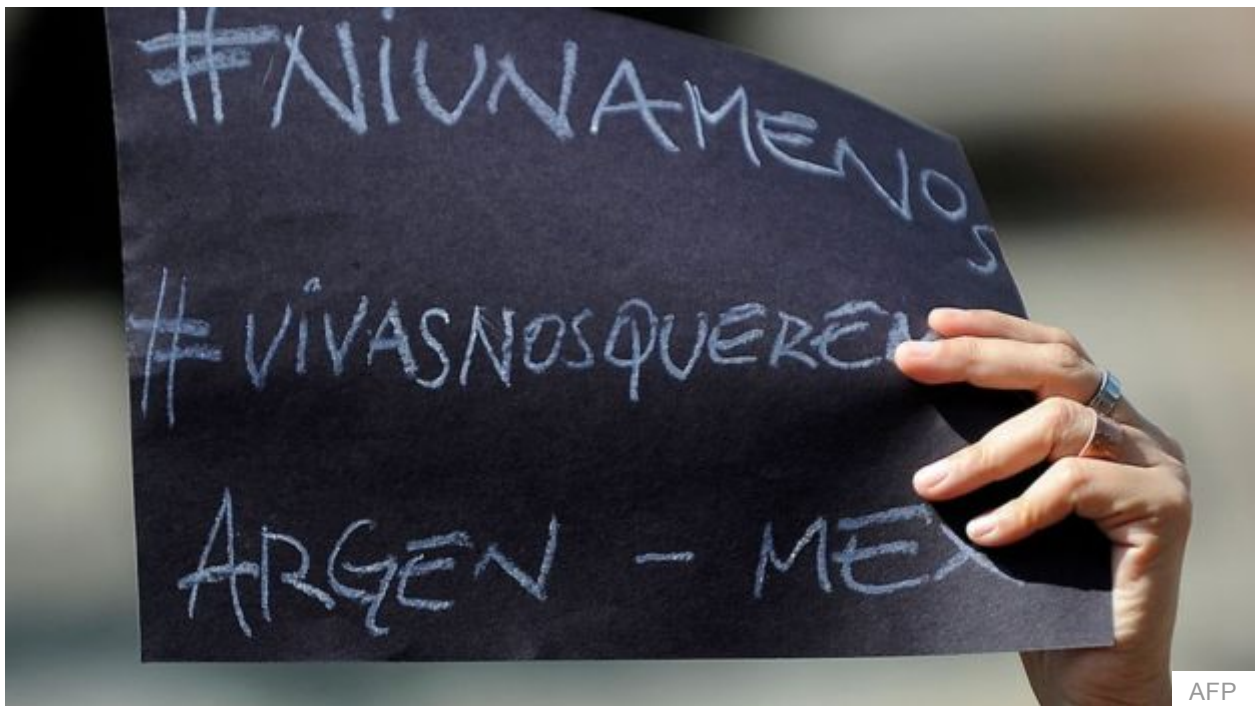 #NiUNAMENOS
#ViVASNOSQUEREM
ARGEN - MEX
AFP